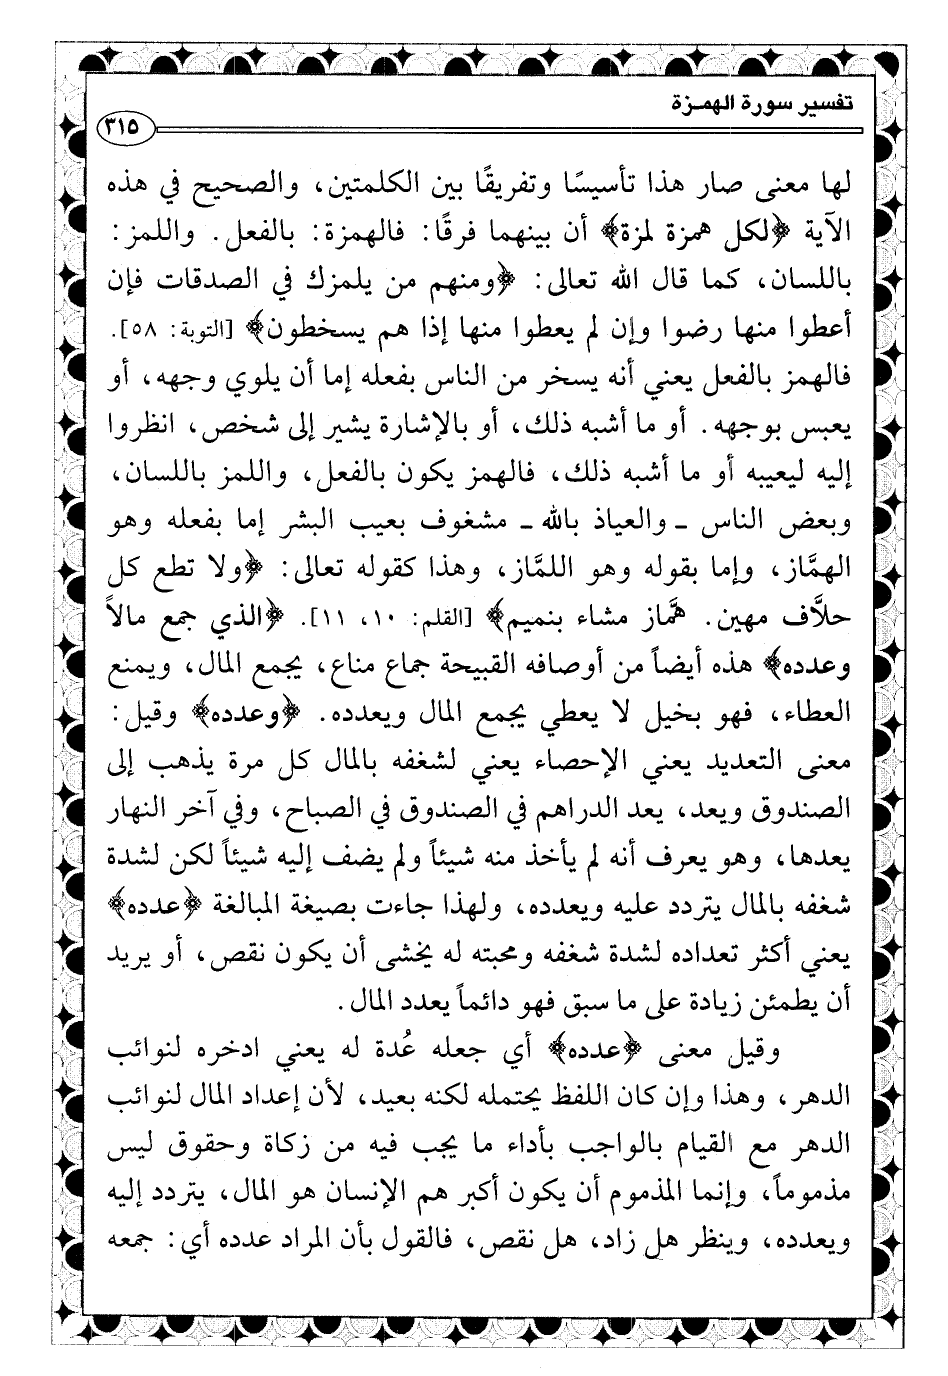 تفسير سورة الهمزة
٣١٥
لها معنى صار هذا تأسيسًا وتفريقًا بين الكلمتين، والصحيح في هذه
الآية ﴿لكل همزة لمزة﴾ أن بينهما فرقًا: فالهمزة: بالفعل. واللمز:
باللسان، كما قال الله تعالى: ﴿ومنهم من يلمزك في الصدقات فإن
أعطوا منها رضوا وإن لم يعطوا منها إذا هم يسخطون﴾ [التوبة: ٥٨].
فالهمز بالفعل يعني أنه يسخر من الناس بفعله إما أن يلوي وجهه، أو
يعبس بوجهه. أو ما أشبه ذلك، أو بالإشارة يشير إلى شخص، انظروا
إليه ليعيبه أو ما أشبه ذلك، فالهمز يكون بالفعل، واللمز باللسان،
وبعض الناس ـ والعياذ بالله ـ مشغوف بعيب البشر إما بفعله وهو
الهمَّاز، وإما بقوله وهو اللمَّاز، وهذا كقوله تعالى: ﴿ولا تطع كل
حلاَّف مهين. همَّاز مشاء بنميم﴾ [القلم: ١٠، ١١]. ﴿الذي جمع مالاً
وعدده﴾ هذه أيضاً من أوصافه القبيحة جماع مناع، يجمع المال، ويمنع
العطاء، فهو بخيل لا يعطي يجمع المال ويعدده. ﴿وعدده﴾ وقيل:
معنى التعديد يعني الإحصاء يعني لشغفه بالمال كل مرة يذهب إلى
الصندوق ويعد، يعد الدراهم في الصندوق في الصباح، وفي آخر النهار
يعدها، وهو يعرف أنه لم يأخذ منه شيئاً ولم يضف إليه شيئاً لكن لشدة
شغفه بالمال يتردد عليه ويعدده، ولهذا جاءت بصيغة المبالغة ﴿عدده﴾
يعني أكثر تعداده لشدة شغفه ومحبته له يخشى أن يكون نقص، أو يريد
أن يطمئن زيادة على ما سبق فهو دائماً يعدد المال.
وقيل معنى ﴿عدده﴾ أي جعله عُدة له يعني ادخره لنوائب
الدهر، وهذا وإن كان اللفظ يحتمله لكنه بعيد، لأن إعداد المال لنوائب
الدهر مع القيام بالواجب بأداء ما يجب فيه من زكاة وحقوق ليس
مذموماً، وإنما المذموم أن يكون أكبر هم الإنسان هو المال، يتردد إليه
ويعدده، وينظر هل زاد، هل نقص، فالقول بأن المراد عدده أي: جمعه